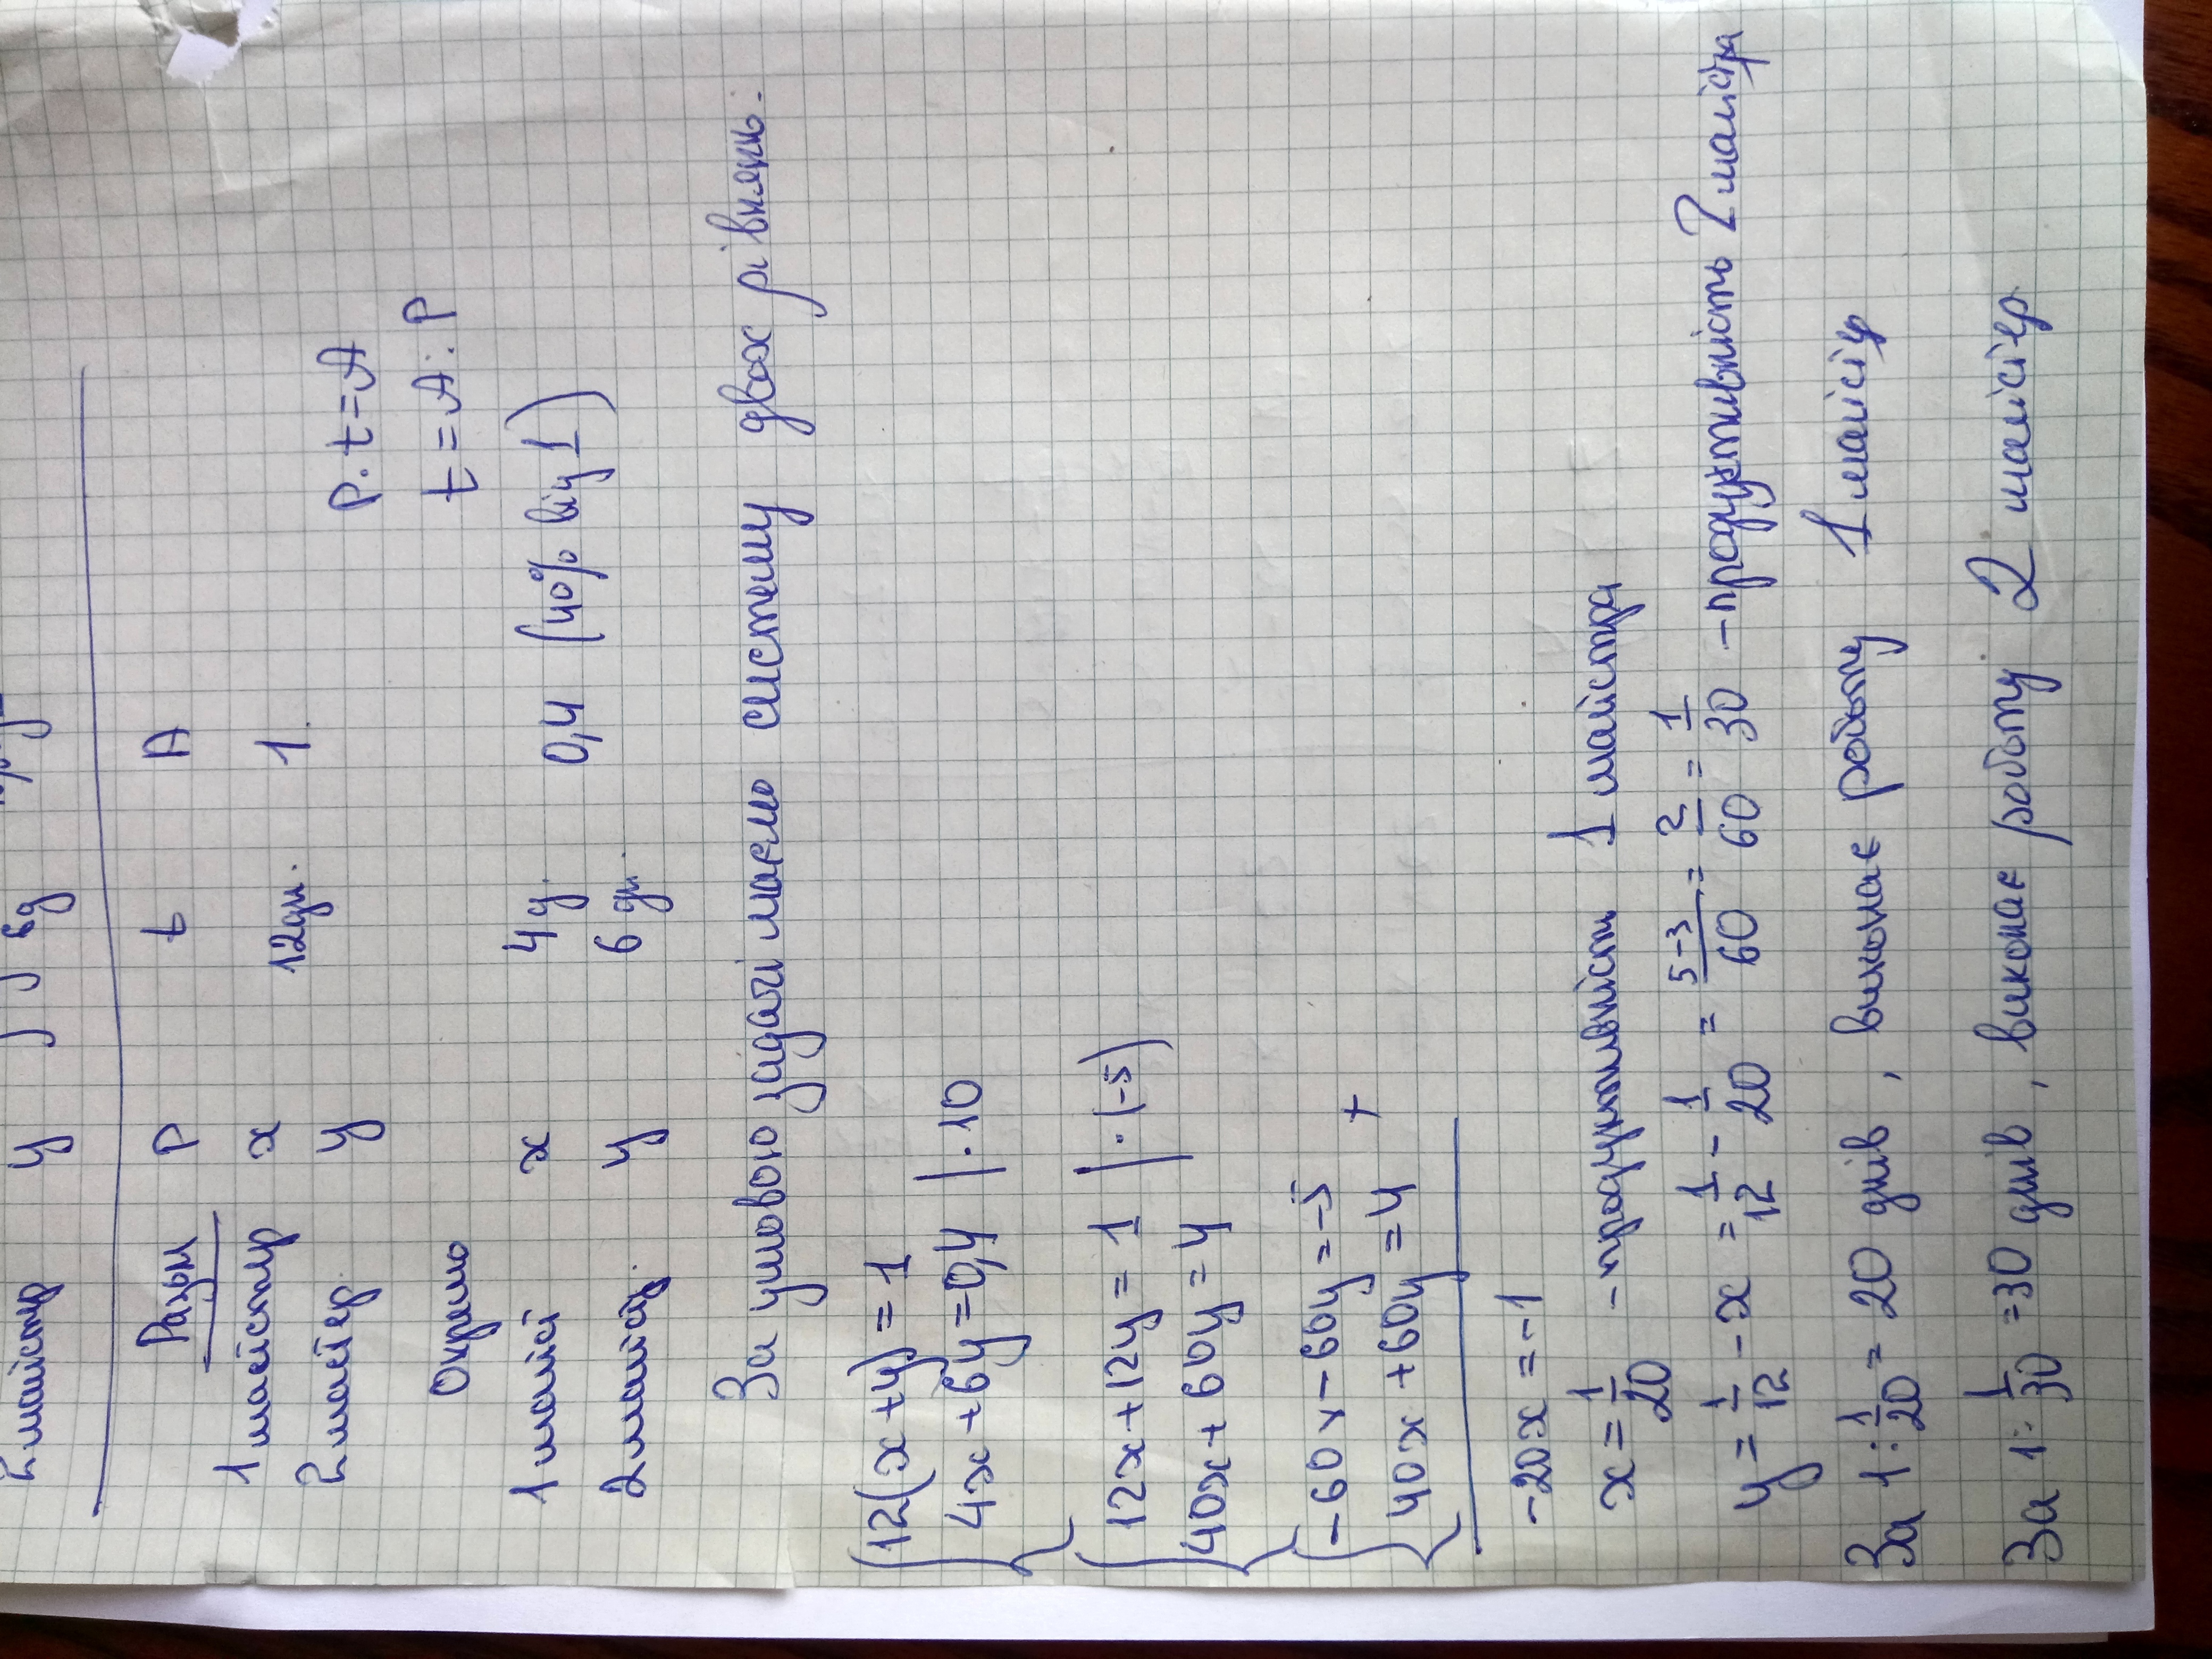 2 майстр у
P t A
Разом
1 майстр x 12дн. 1
2 майтер. y
P · t = A
Окремо t = A : P
1 майст x 4 д. 0,4 (40% від 1)
2 майст. y 6 дн.
За умовою задачі маємо систему двох рівнянь.
{12(x+y)=1
4x+6y=0,4 | · 10
{12x+12y=1 | · (-5)
40x+60y=4
{-60x-60y=-5
40x+60y=4 +
-20x=-1
x=1/20 - продуктивніст 1 майстра
y=1/12-x=1/12-1/20=5-3/60=2/60=1/30 - продуктивність 2 майстра
За 1:1/20=20 днів, виконає роботу 1 майстр
За 1:1/30=30 днів, виконає роботу 2 майстер